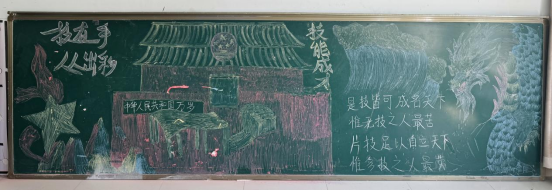 技在手
从出彩
技能成才
中华人民共和国万岁
是技皆可成名天下
惟无技之人最苦
片技足以自立天下
惟多技之人最满